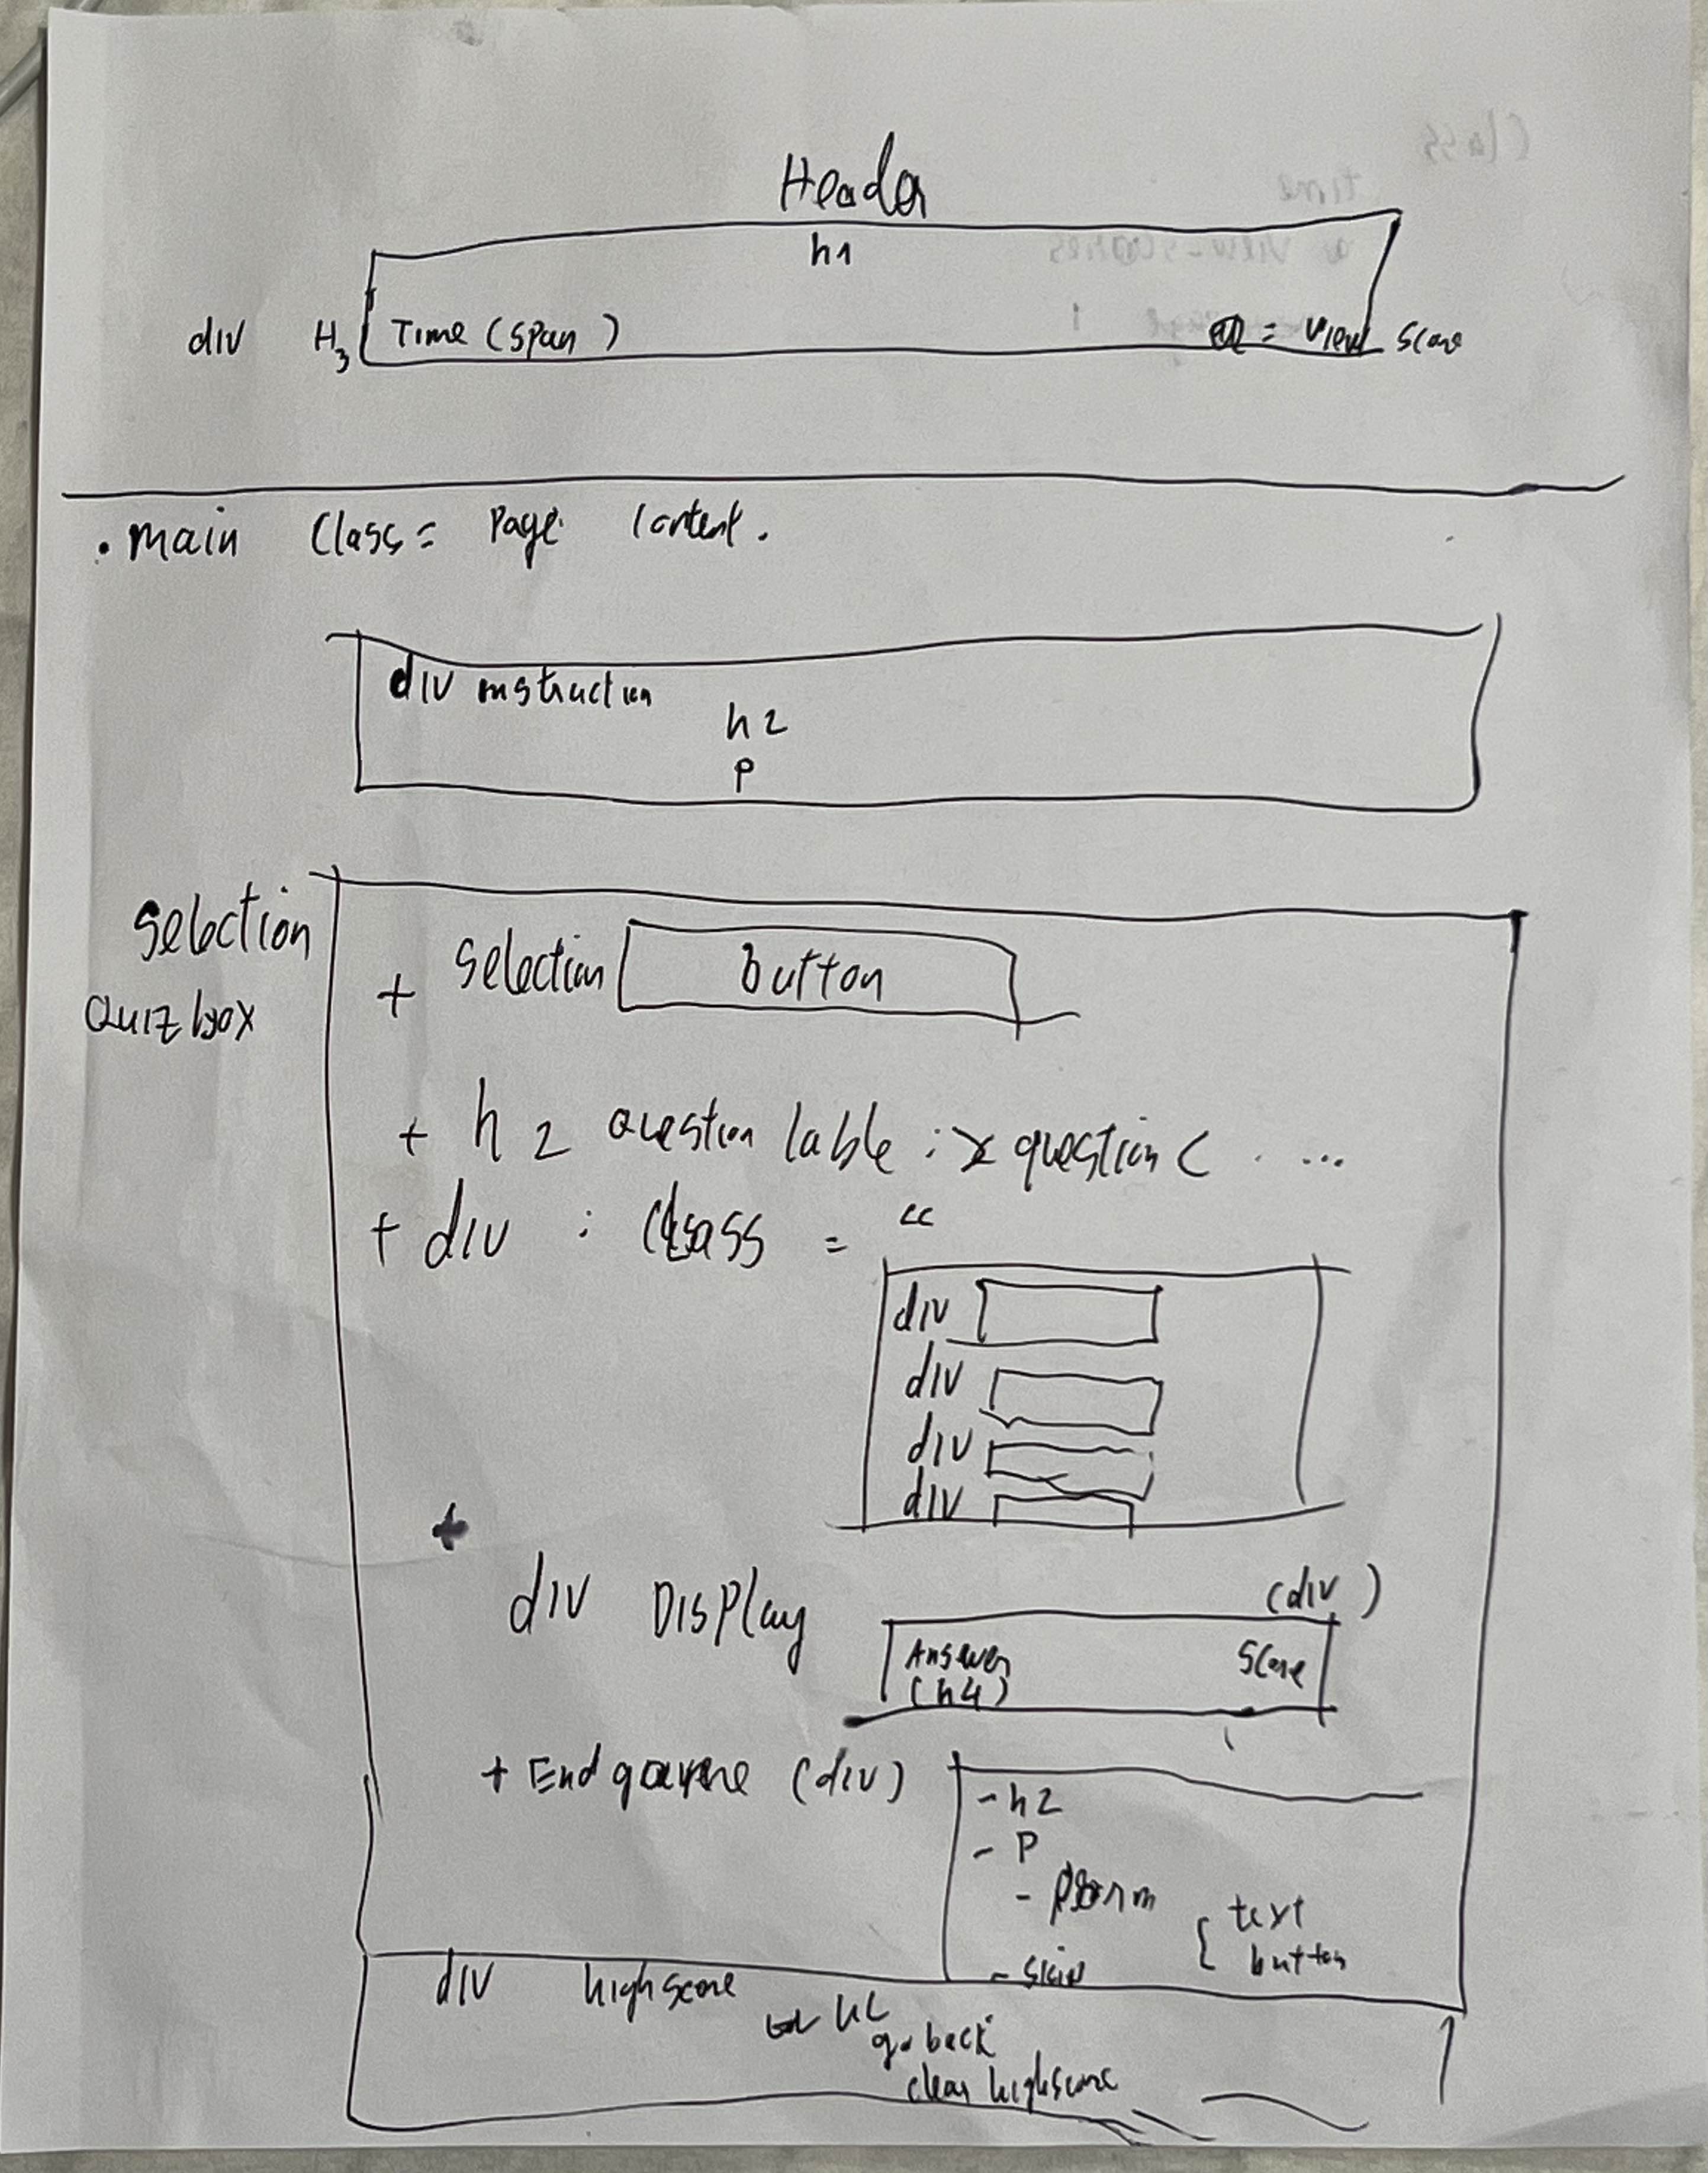 Header
h1
div H3 Time (span) = View Score
. main Class = Page content.
div instruction
h2
p
Selection
Quiz box
+ Selection button
+ h2 question lable : question
+ div : Class = “
div
div
div
div
+
div Display (div)
Answer Score
(h4)
+ End game (div)
- h2
- P
- form
{ text
button
-
div highscore
go back
clear highscore